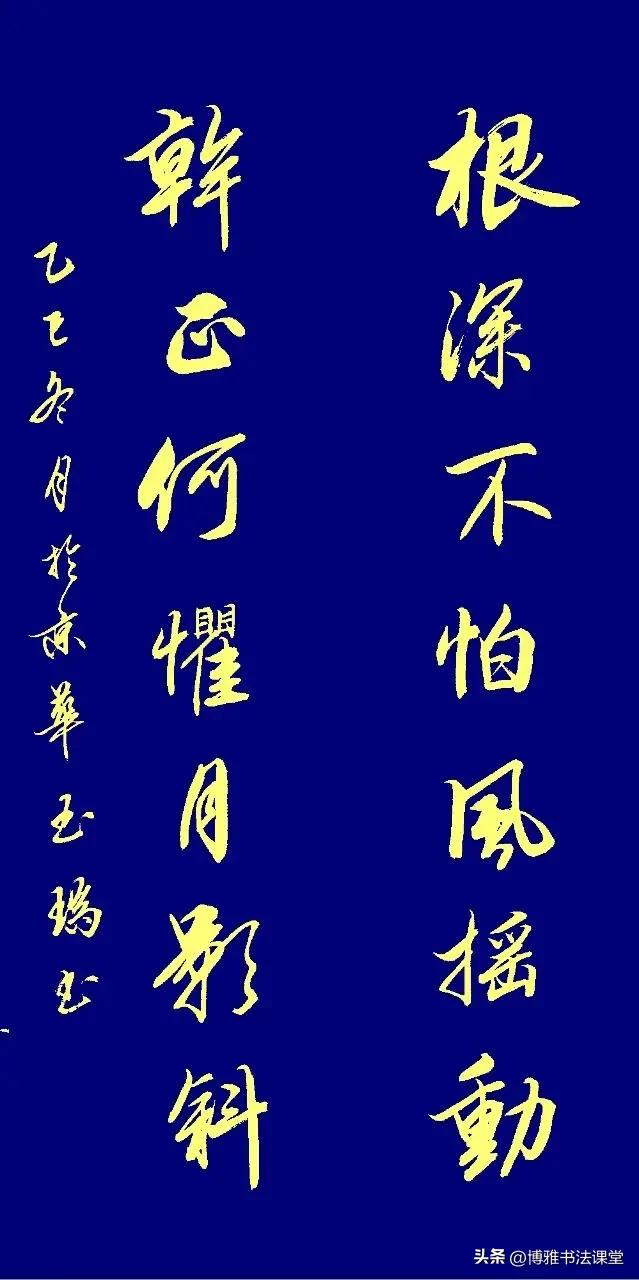 根深不怕風摇動
幹正何懼月影斜
乙巳冬月於京華玉瑞書
头条 @博雅书法课堂